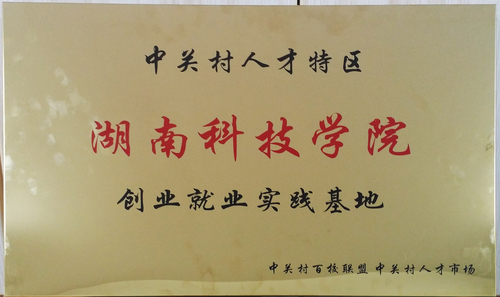 中关村人才特区
湖南科技学院
创业就业实践基地
中关村百校联盟 中关村人才市场